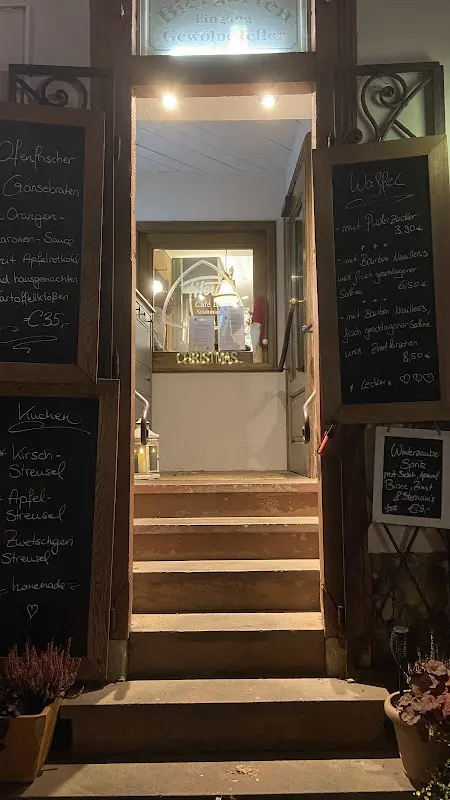 Biergarten
Eingang
Gewölbekeller
Ofenfrischer
Gänsebraten
Orangen-
Maronen-Sauce
mit Apfelrotkohl
und hausgemachten
Kartoffelklößen
€35,-
Kuchen
* Kirsch-
Streusel
Apfel-
Streusel
Zwetschgen
Streusel
homemade
Café
CHRISTMAS
Waffel
- mit Puderzucker
3,90 €
- mit Bourbon Vanilleeis
und frisch geschlagener
Sahne
6,50 €
- mit Bourbon Vanilleeis,
frisch geschlagener Sahne
und Zimtkirschen
8,50 €
Lecker
Winterzauber
Spritz
mit Sekt, Aperol
Birne, Zimt
& Sternanis
€9,-